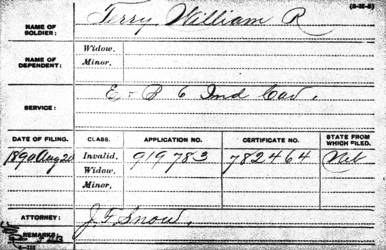 (3-III-6)
NAME OF SOLDIER: Terry William R
NAME OF DEPENDENT: Widow,
Minor,
SERVICE: E & B 6 Ind Cav.
DATE OF FILING. CLASS. APPLICATION NO. CERTIFICATE NO. STATE FROM WHICH FILED.
1890 Aug 20 Invalid, 919783 782464 Neb
Widow,
Minor,
ATTORNEY: J. F. Snow.
REMARKS: